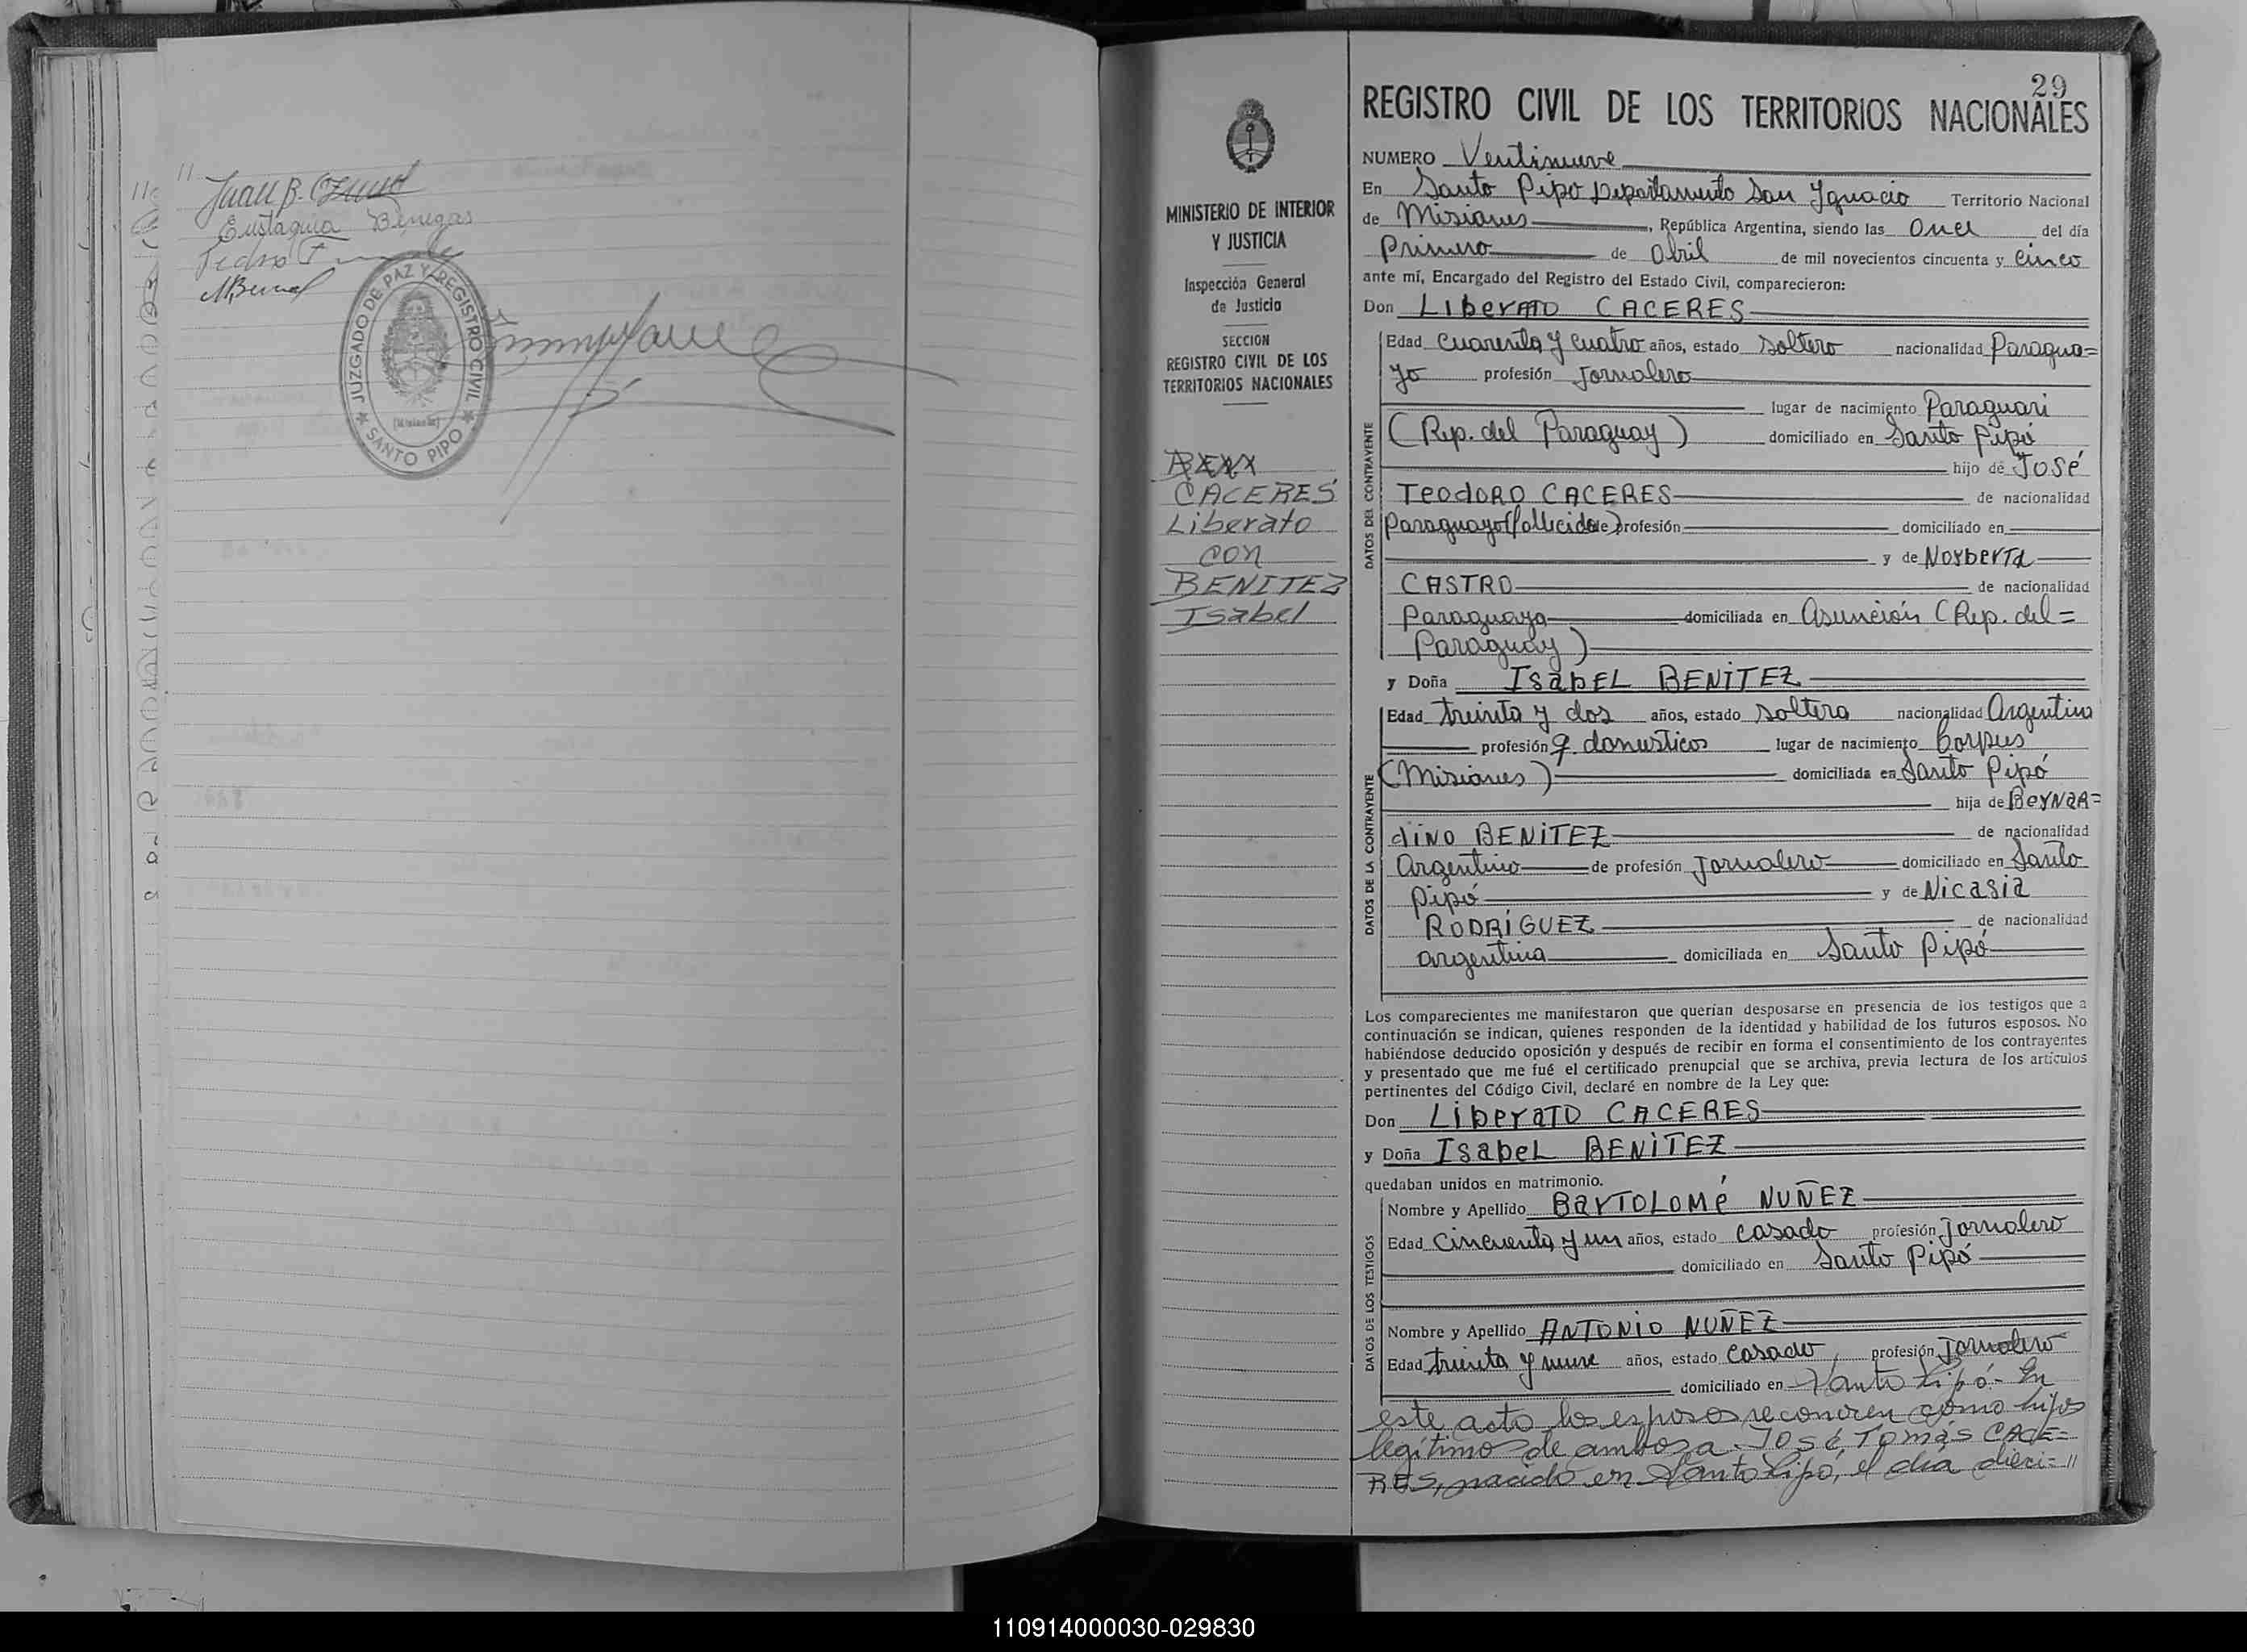 Juan B.
Eustaquia Benegas
Pedro
JUZGADO DE PAZ Y REGISTRO CIVIL
SANTO PIPO
29
REGISTRO CIVIL DE LOS TERRITORIOS NACIONALES
MINISTERIO DE INTERIOR
Y JUSTICIA
Inspección General
de Justicia
SECCION
REGISTRO CIVIL DE LOS
TERRITORIOS NACIONALES
CACERES
Liberato
con
BENITEZ
Isabel
NUMERO Ventinueve
En Santo Pipó Departamento San Ignacio Territorio Nacional
de Misiones, República Argentina, siendo las once del día
primero de abril de mil novecientos cincuenta y cinco
ante mí, Encargado del Registro del Estado Civil, comparecieron:
Don Liberato CACERES
DATOS DEL CONTRAYENTE
Edad cuarenta y cuatro años, estado soltero nacionalidad Paragua=
yo profesión Jornalero
lugar de nacimiento Paraguari
(Rep. del Paraguay) domiciliado en Santo Pipó
hijo de José
Teodoro CACERES de nacionalidad
Paraguayo (fallecido) de profesión domiciliado en
y de Norberta
CASTRO de nacionalidad
Paraguaya domiciliada en Asunción (Rep. del =
Paraguay)
y Doña Isabel BENITEZ
DATOS DE LA CONTRAYENTE
Edad treinta y dos años, estado soltera nacionalidad Argentina
profesión q. domesticos lugar de nacimiento Corpus
(Misiones) domiciliada en Santo Pipó
hija de Bernar=
dino BENITEZ de nacionalidad
Argentino de profesión Jornalero domiciliado en Santo
Pipó y de Nicasia
RODRÍGUEZ de nacionalidad
argentina domiciliada en Santo Pipó
Los comparecientes me manifestaron que querían desposarse en presencia de los testigos que a
continuación se indican, quienes responden de la identidad y habilidad de los futuros esposos. No
habiéndose deducido oposición y después de recibir en forma el consentimiento de los contrayentes
y presentado que me fué el certificado prenupcial que se archiva, previa lectura de los artículos
pertinentes del Código Civil, declaré en nombre de la Ley que:
Don Liberato CACERES
y Doña Isabel BENITEZ
quedaban unidos en matrimonio.
DATOS DE LOS TESTIGOS
Nombre y Apellido Bartolomé NUÑEZ
Edad cincuenta y un años, estado casado profesión Jornalero
domiciliado en Santo Pipó
Nombre y Apellido ANTONIO NUÑEZ
Edad treinta y nueve años, estado casado, profesión Jornalero
domiciliado en Santo Pipó.- En
este acto los esposos reconocen como hijos
legítimos de ambos a José Tomás CACE=
RES, nacido en Santo Pipó, el día dieci=//
110914000030-029830